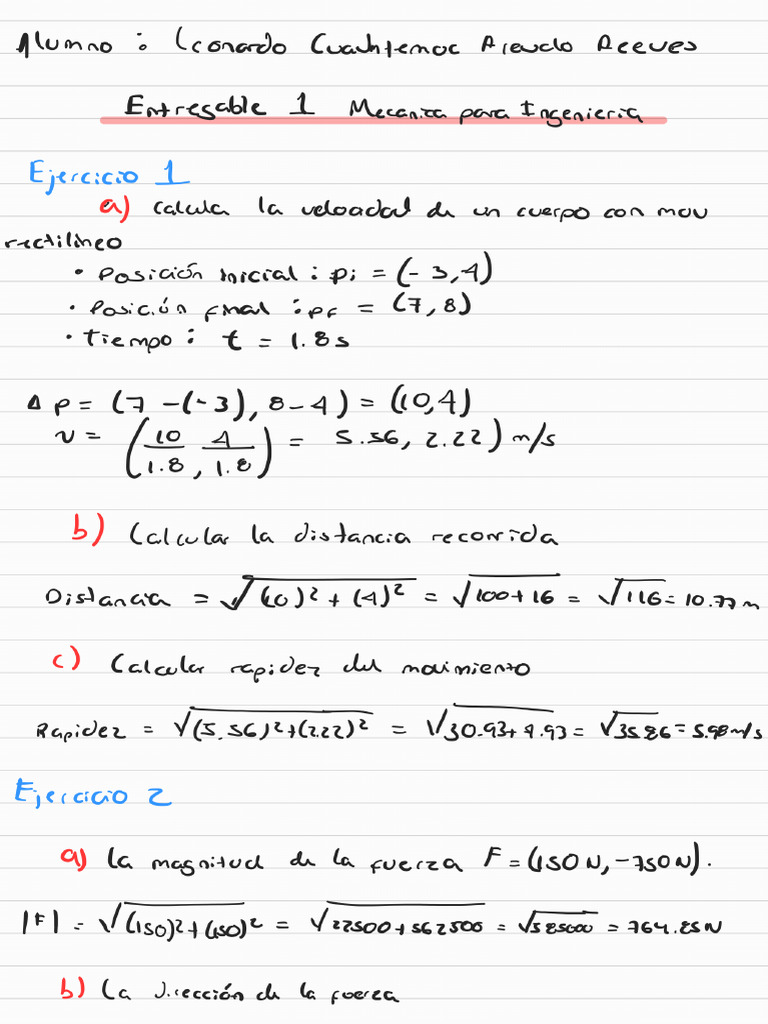 Alumno : Leonardo Cuauhtemoc Acevdo Reeves
Entregable 1 Mecanica para Ingenieria
Ejercicio 1
a) Calcula la velocidad de un cuerpo con mov
rectilíneo
• Posición Inicial : pi = (-3,4)
• Posición final : pf = (7,8)
• Tiempo : t = 1.8s
Δp = (7-(-3), 8-4) = (10,4)
v = (10/1.8, 4/1.8) = 5.56, 2.22) m/s
b) Calcular la distancia recorrida
Distancia = √(10)² + (4)² = √100+16 = √116 = 10.77 m
c) Calcular rapidez del movimiento
Rapidez = √(5.56)²+(2.22)² = √30.93+4.93 = √35.86 = 5.98 m/s
Ejercicio 2
a) La magnitud de la fuerza F = (150N, -750N).
|F| = √(150)²+(750)² = √22500+562500 = √585000 = 764.85N
b) La dirección de la fuerza